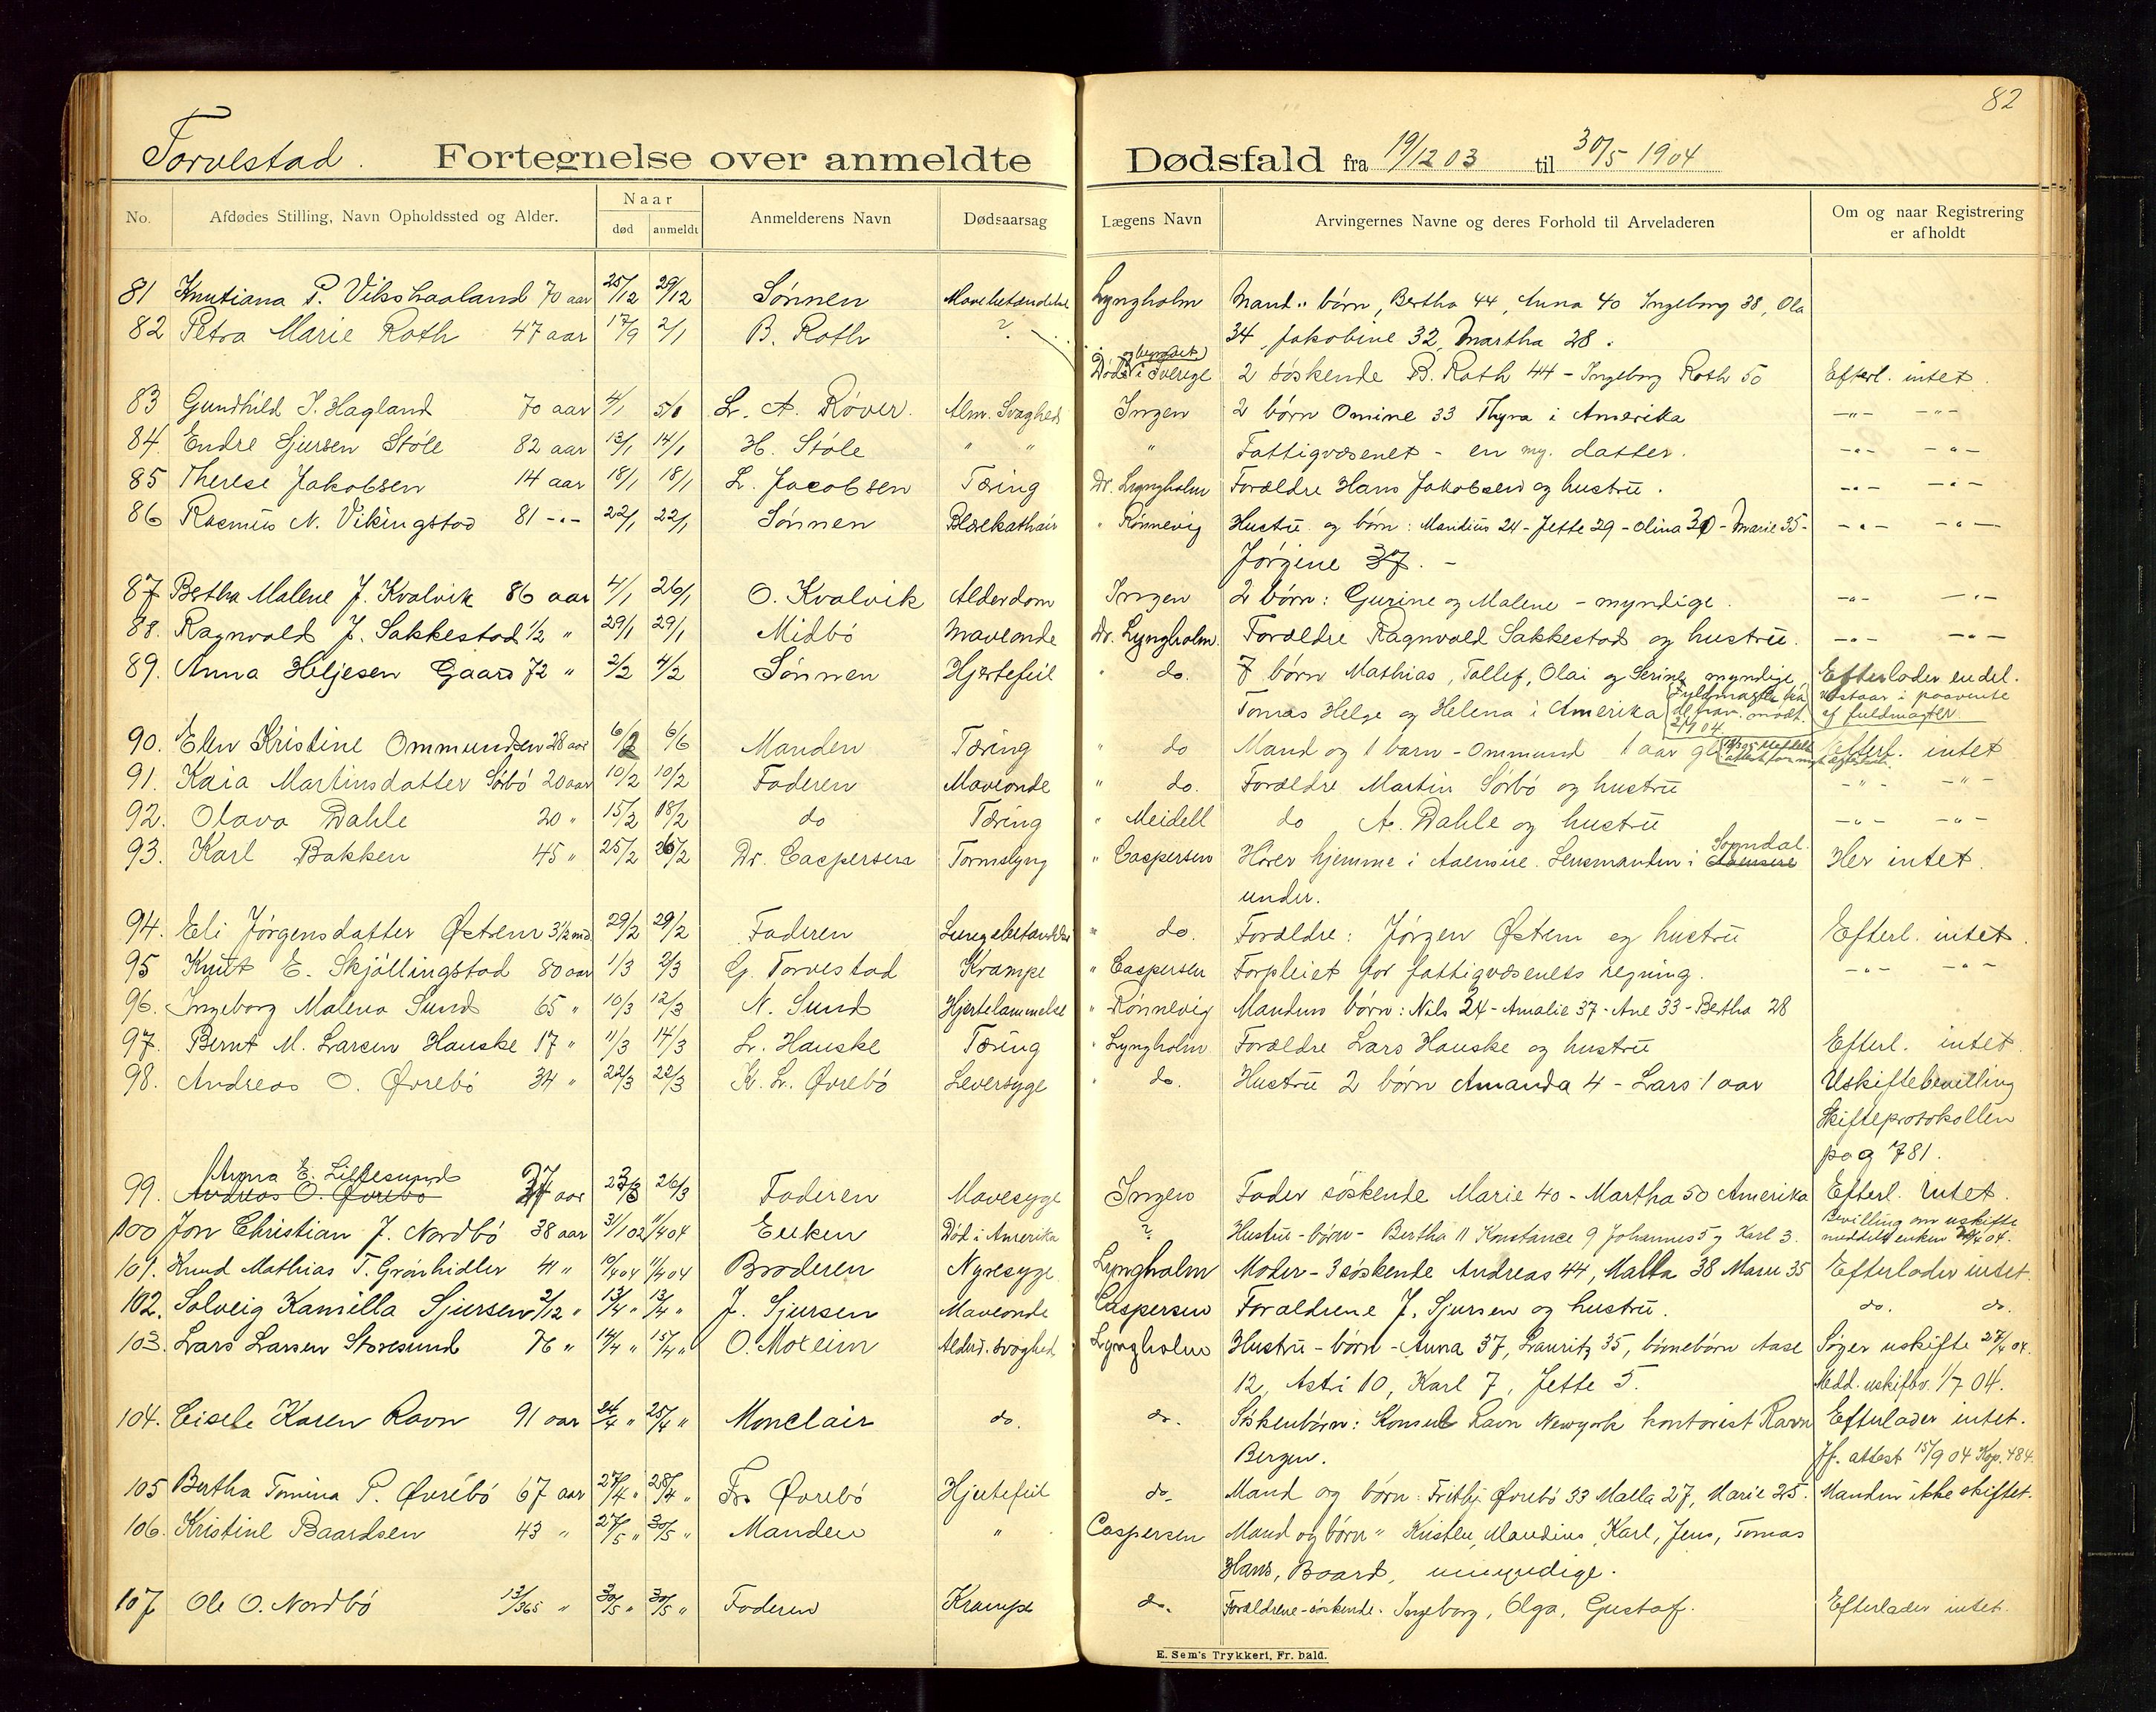 82
Torvestad. Fortegnelse over anmeldte Dødsfald fra 19/12 03 til 30/5 1904
No. Afdødes Stilling, Navn Opholdssted og Alder. Naar død anmeldt Anmelderens Navn Dødsaarsag Lægens Navn Arvingernes Navne og deres Forhold til Arveladeren Om og naar Registrering er afholdt
81 Knutiana P. Vikshaaland 70 aar 25/12 29/12 Sønnen Mavebetændelse Lyngholm Mand " børn, Bertha 44, Anna 40 Ingeborg 38, Ola
82 Petra Marie Roth 47 aar 17/9 2/1 B. Roth ? 34, Jakobine 32, Martha 28.
Død i Sverige 2 søskende B. Roth 44 - Ingeborg Roth 50 Efterl. intet.
83 Gundhild I. Hagland 70 aar 4/1 5/1 L. A. Røver. Alm. Svaghed Ingen 2 børn Omine 33 Thyra i Amerika -"- -"-
84. Endre Sjursen Støle 82 aar 13/1 14/1 H. Støle " " " Fattigvæsenet - en my. datter. -"- -"-
85 Therese Jakobsen 14 aar 18/1 18/1 L. Jacobsen Tæring Dr. Lyngholm Forældre Hans Jakobsen og hustru. -"- -"-
86 Rasmus N. Vikingstad 81 -"- 22/1 22/1 Sønnen Blærekathair " Rønnevig Hustru og børn: Mandius 24 - Jette 29 - Olina 30 - Marie 35 - -"- -"-
Jørgine 37. -
87 Bertha Malene J. Kvalvik 86 aar 4/1 26/1 O. Kvalvik Alderdom Ingen 2 børn: Gurine og Malene - myndige. -"- -"-
88. Ragnvald J. Sakkestad 1/2 " 29/1 29/1 Midbö Maveonde Dr. Lyngholm. Forældre Ragnvald Sakkestad og hustru. -"- -"-
89. Anna Heljesen Gaard 72 " 2/2 4/2 Sönnen Hjertefeil " do. 7 børn Mathias, Tollef, Olai og Serine myndige, Efterlader en del.
Tomas Helge og Helena i Amerika af fuldmagter
90. Elen Kristine Ommundsen 28 aar 6/2 6/6 Manden Tæring " do Mand og 1 barn - Ommund 1 aar gl. Efterl. intet
91. Kaia Martinsdatter Sørbö 20 aar 10/2 10/2 Faderen Maveonde " do. Forældre Martin Sørbö og hustru -"- -"-
92. Olava Dahle 20 " 15/2 18/2 do Tæring " Meidell do A. Dahle og hustru -"- -"-
93. Karl Bakken 45 " 25/2 26/2 Dr. Caspersen Tarmslyng " Caspersen Hører hjemme i Aaensire. Lensmanden i Sogndal Her intet.
under.
94. Eli Jørgensdatter Østrem 3 1/2 md. 29/2 29/2 Faderen Lungebetændelse " do. Forældre: Jørgen Østrem og hustru Efterl. intet.
95 Knut E. Skjöllingstad 80 aar 1/3 2/3 G. Torvestad Krampe " Caspersen Forpleiet for fattigvæsenets regning. -"- -"-
96. Ingeborg Malena Sund 65 " 10/3 12/3 N. Sund Hjertelammelse " Rønnevig Mandens børn: Nils 24 - Amalie 37 - Ane 33 - Bertha 28
97. Bernt M. Larsen Hauske 17 " 11/3 14/3 L. Hauske Tæring " Lyngholm Forældre Lars Hauske og hustru Efterl. intet.
98. Andreas O. Øvrebö 34 " 22/3 22/3 K. L. Øvrebö Leversyge " do. Hustru 2 børn Amanda 4 - Lars 1 aar Uskiftebevilling
Skifteprotokollen
pag 781.
Anna E. Lillesund
99. Andreas O. Øvrebö 37 aar 23/3 26/3 Faderen Mavesyge Ingen Fader søskende Marie 40 - Martha 50 Amerika Efterl. intet.
100 Jon Christian J. Nordbö 38 aar 31/1 02 11/4 04 Enken Död i Amerika ? Hustru - børn - Bertha 11 Konstance 9 Johannes 5 og Karl 3. Bevilling om uskifte meddelt enken 04.
101. Knud Mathias T. Grønhidler 41 " 10/4 04 11/4 04 Broderen Nyresyge Lyngholm Moder - 3 søskende Andreas 44, Malla 38 Marie 35 Efterlader intet.
102. Solveig Kamilla Sjursen 2/12 " 13/4 " 13/4 " J. Sjursen Maveonde Caspersen Forældrene J. Sjursen og hustru. do. do.
103. Lars Larsen Storesund 76 " 14/4 " 15/4 " O. Moreim Alderd. svaghed Lyngholm Hustru - børn - Anna 37, Lauritz 35, børnebørn Aase Søger uskifte 27/4 04.
12, Astri 10, Karl 7, Jette 5. Medd. uskiftbv. 1/7 04.
104. Gisele Karen Ravn 91 aar 24/4 " 25/4 " Monclair do. do. Søskenbørn: Konsul Ravn Newyork kontorist Ravn Efterlader intet.
Bergen. Jf. attest 15/9 04 Kop. 484.
105 Bertha Tomina P. Øvrebö 67 aar 27/4 " 28/4 " Fr. Øvrebö Hjertefeil do. Mand og børn: Frithj. Øvrebö 33 Malla 27, Marie 25. Manden ikke skiftet.
106. Kristine Baardsen 43 " 27/5 " 30/5 " Manden " Caspersen Mand og børn " Kristen, Mandius, Karl, Jens, Tomas
Hans, Baard, umyndige.
107 Ole O. Nordbö 13/365 " 30/5 " 30/5 " Faderen Krampe do. Forældrene - søskende. Ingeborg, Olga, Gustaf. Efterlader intet.
E. Sem's Trykkeri, Fr. hald.